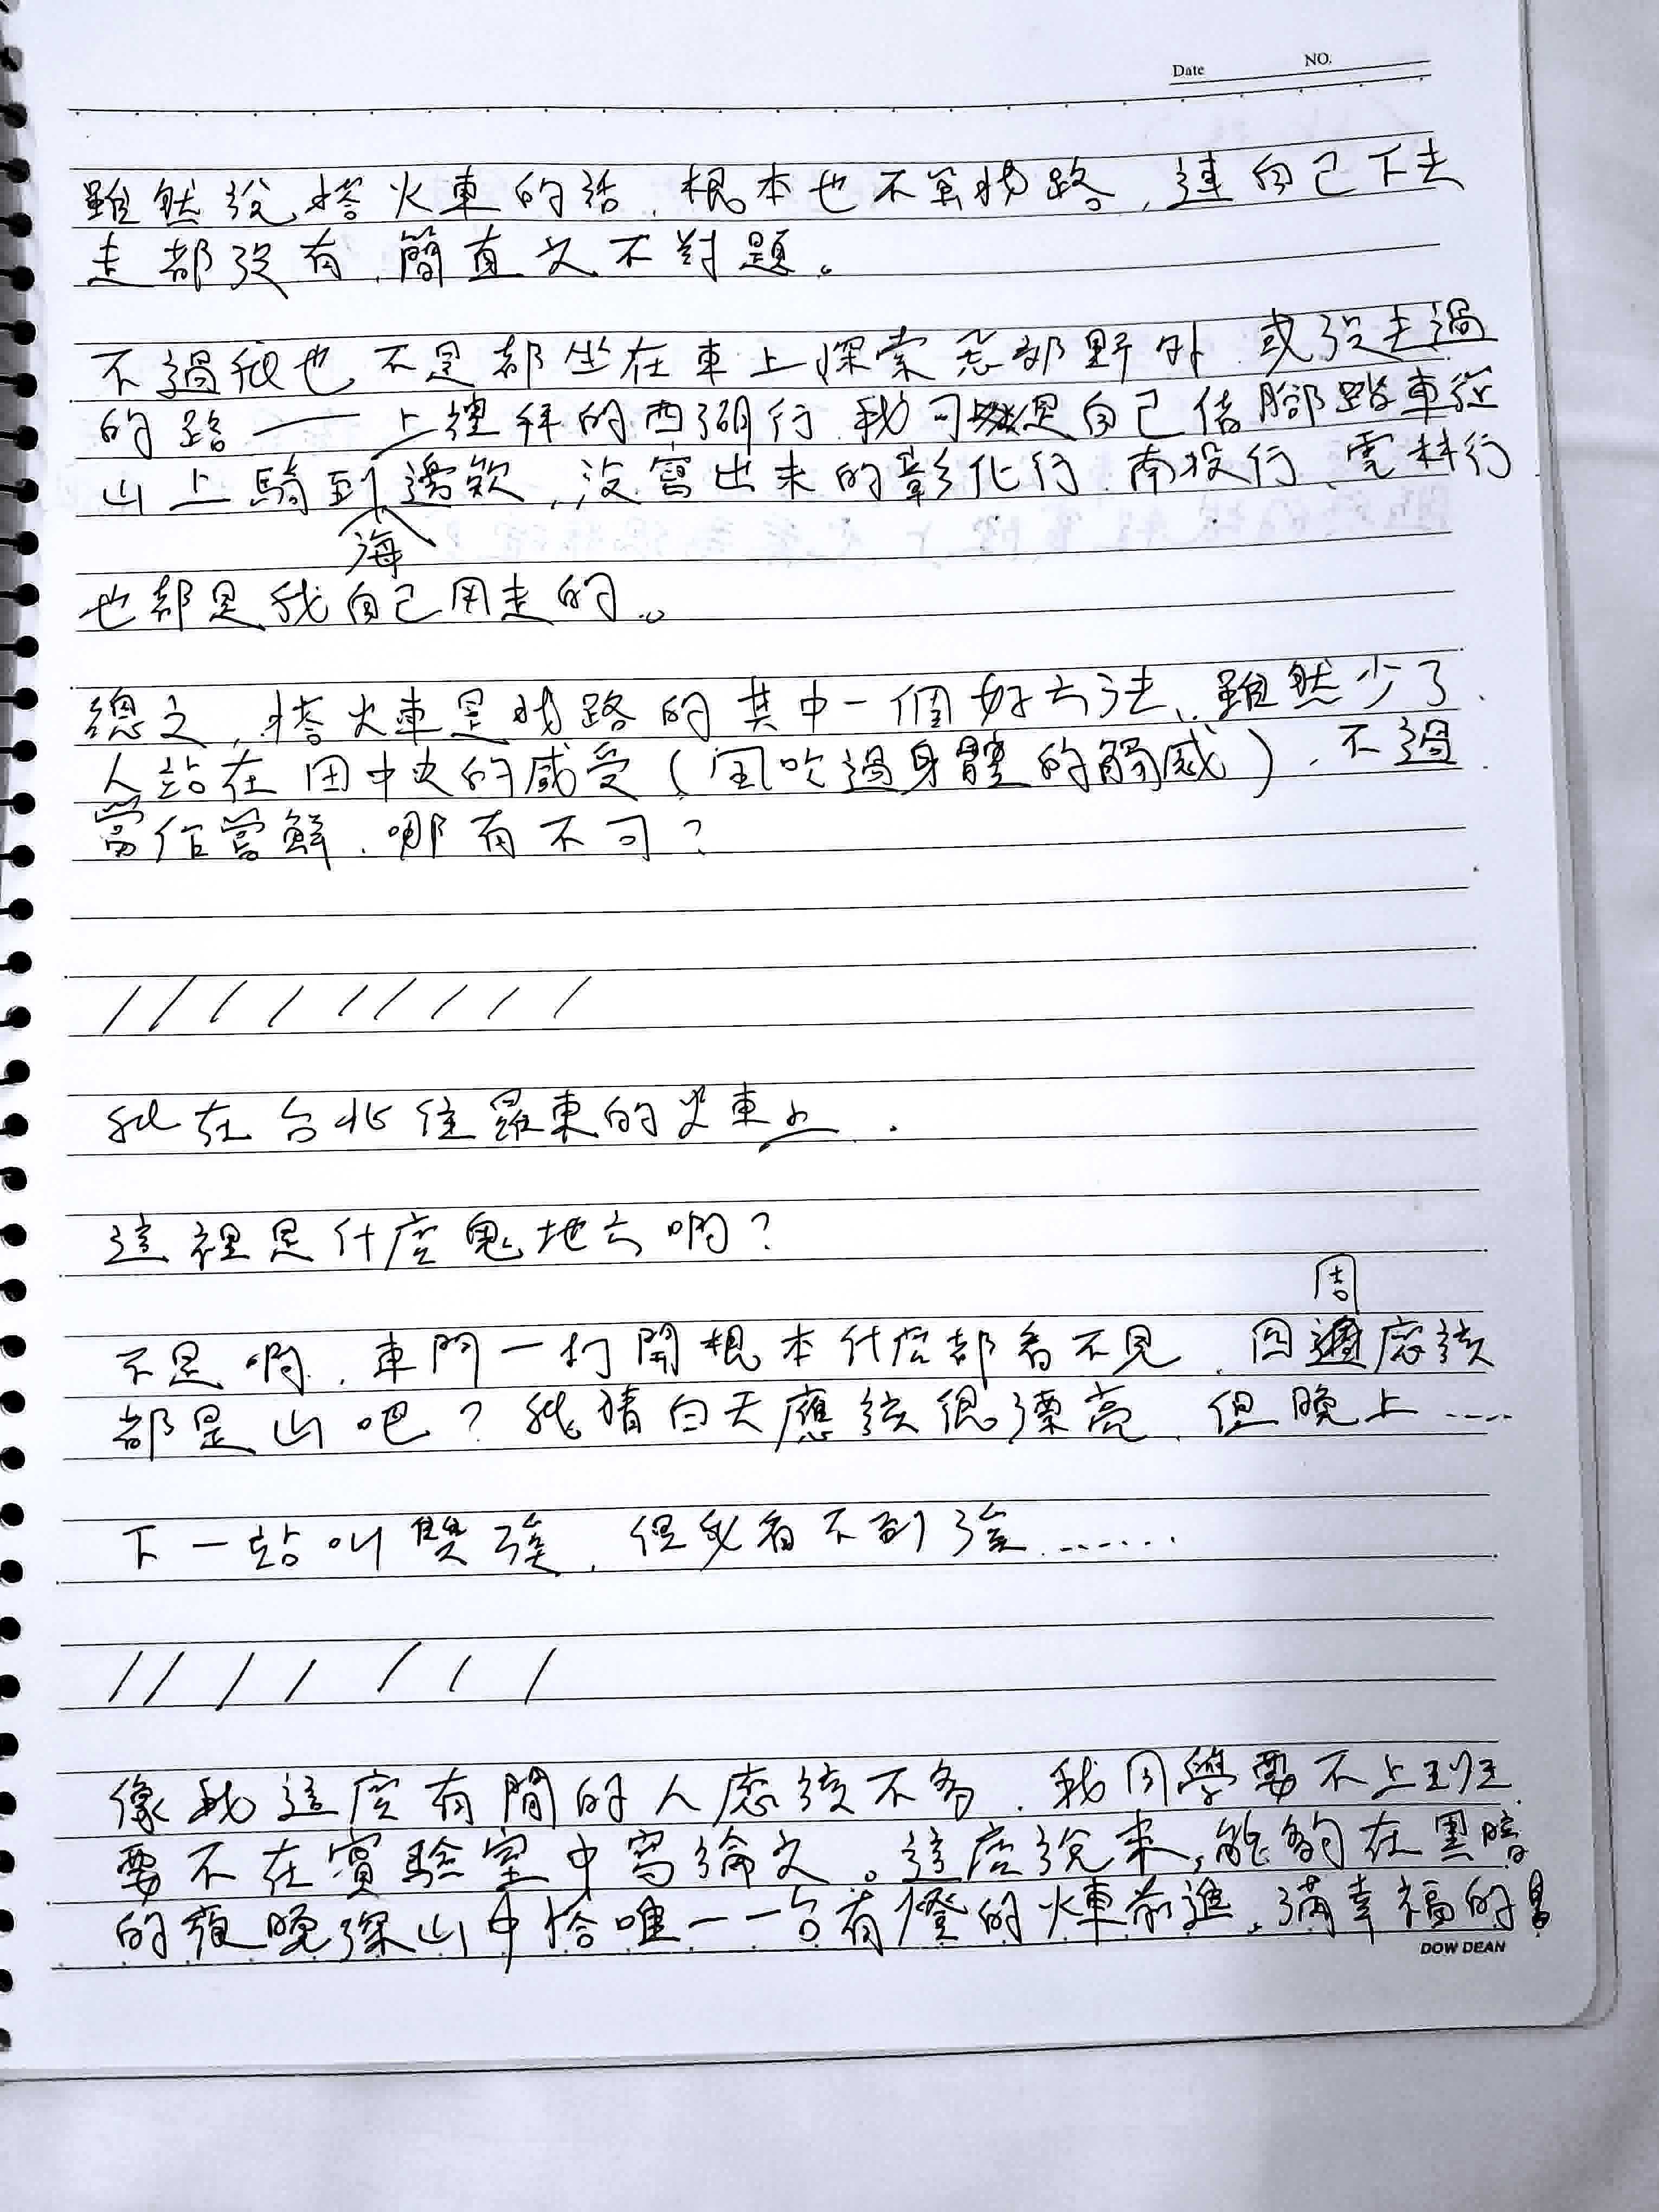 Date NO.
雖然說搭火車的話,根本也不算找路,連自己下去
走都沒有,簡直文不對題。
不過我也不是都坐在車上探索荒郊野外,或沒走過
的路——上禮拜的西湖行,我可是自己借腳踏車從
山上騎到海邊欸,沒寫出來的彰化行、南投行、雲林行
也都是我自己用走的。
總之,搭火車是找路的其中一個好方法,雖然少了
人站在田中央的感受(風吹過身體的觸感),不過
當作嘗鮮,哪有不可?
/ / / / / / / / /
我在台北往羅東的火車上.
這裡是什麼鬼地方啊?
不是啊,車門一打開根本什麼都看不見,四周應該
都是山吧?我猜白天應該很漂亮,但晚上……
下一站叫雙溪,但我看不到溪……
/ / / / / / /
像我這麼有閒的人應該不多,我同學要不上班
要不在實驗室中寫論文。這麼說來,能夠在黑暗
的夜晚深山中搭唯一一台有燈的火車前進,滿幸福的!
DOW DEAN